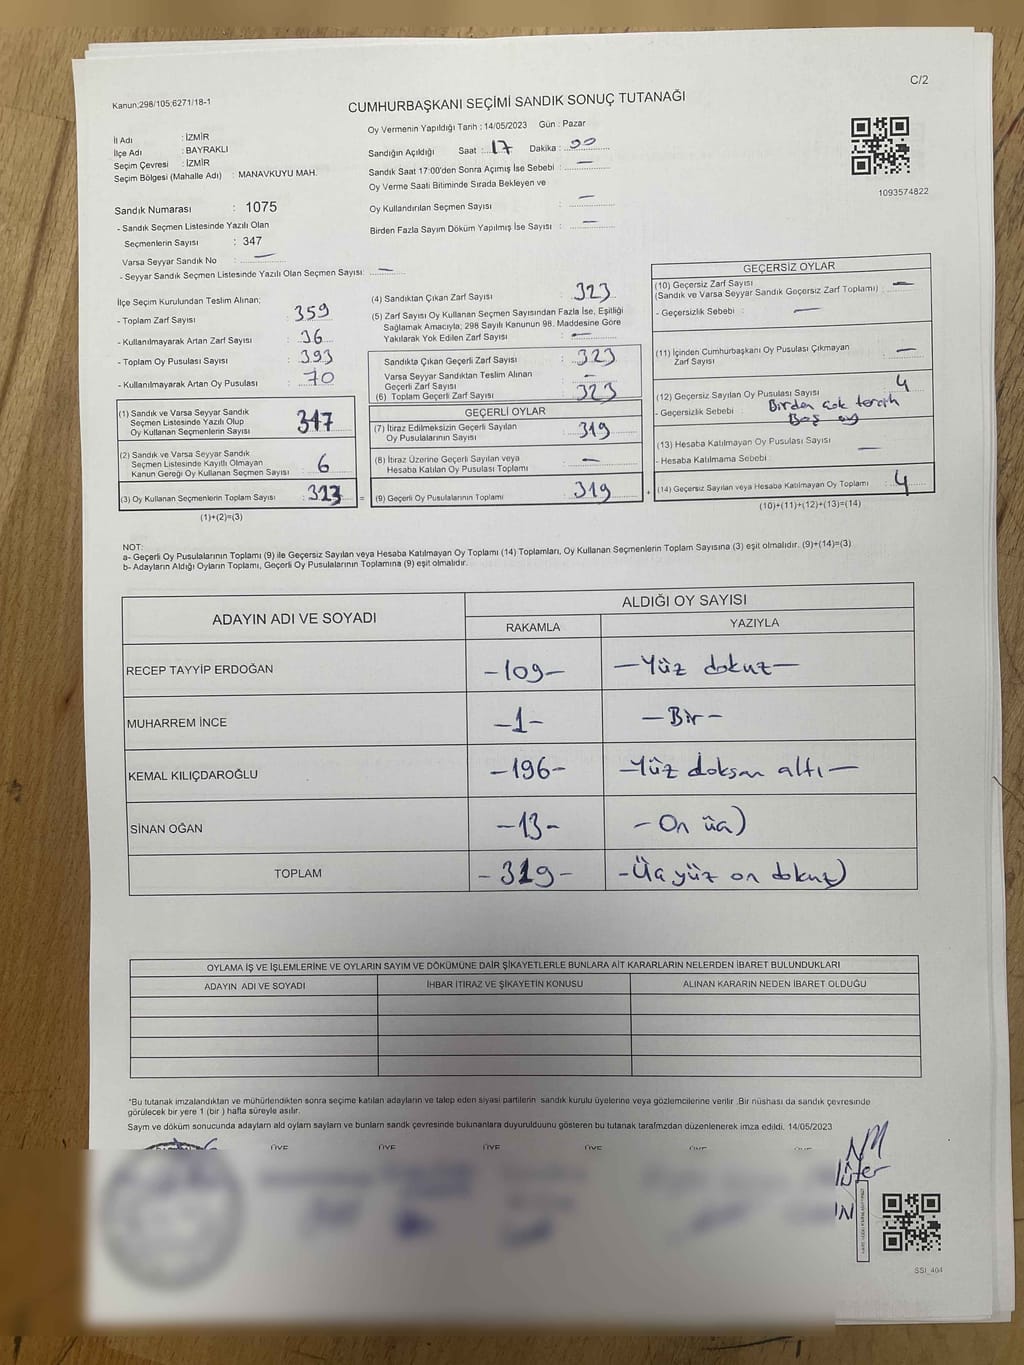 C/2
Kanun;298/105;6271/18-1
CUMHURBAŞKANI SEÇİMİ SANDIK SONUÇ TUTANAĞI
İl Adı : İZMİR
İlçe Adı : BAYRAKLI
Seçim Çevresi : İZMİR
Seçim Bölgesi (Mahalle Adı) : MANAVKUYU MAH.
Sandık Numarası : 1075
- Sandık Seçmen Listesinde Yazılı Olan
Seçmenlerin Sayısı : 347
Varsa Seyyar Sandık No : —
- Seyyar Sandık Seçmen Listesinde Yazılı Olan Seçmen Sayısı: —
Oy Vermenin Yapıldığı Tarih : 14/05/2023 Gün : Pazar
Sandığın Açıldığı Saat : 17 Dakika : 00
Sandık Saat 17:00'den Sonra Açımış İse Sebebi : —
Oy Verme Saati Bitiminde Sırada Bekleyen ve
Oy Kullandırılan Seçmen Sayısı : —
Birden Fazla Sayım Döküm Yapılmış İse Sayısı : —
1093574822
İlçe Seçim Kurulundan Teslim Alınan;
- Toplam Zarf Sayısı : 359
- Kullanılmayarak Artan Zarf Sayısı : 36
- Toplam Oy Pusulası Sayısı : 393
- Kullanılmayarak Artan Oy Pusulası : 70
(1) Sandık ve Varsa Seyyar Sandık
Seçmen Listesinde Yazılı Olup
Oy Kullanan Seçmenlerin Sayısı 317
(2) Sandık ve Varsa Seyyar Sandık
Seçmen Listesinde Kayıtlı Olmayan
Kanun Gereği Oy Kullanan Seçmen Sayısı 6
(3) Oy Kullanan Seçmenlerin Toplam Sayısı : 323
(1)+(2)=(3)
(4) Sandıktan Çıkan Zarf Sayısı : 323
(5) Zarf Sayısı Oy Kullanan Seçmen Sayısından Fazla İse, Eşitliği
Sağlamak Amacıyla; 298 Sayılı Kanunun 98. Maddesine Göre
Yakılarak Yok Edilen Zarf Sayısı : —
Sandıkta Çıkan Geçerli Zarf Sayısı : 323
Varsa Seyyar Sandıktan Teslim Alınan
Geçerli Zarf Sayısı : —
(6) Toplam Geçerli Zarf Sayısı : 323
GEÇERLİ OYLAR
(7) İtiraz Edilmeksizin Geçerli Sayılan
Oy Pusulalarının Sayısı : 319
(8) İtiraz Üzerine Geçerli Sayılan veya
Hesaba Katılan Oy Pusulası Toplamı : —
(9) Geçerli Oy Pusulalarının Toplamı : 319
GEÇERSİZ OYLAR
(10) Geçersiz Zarf Sayısı
(Sandık ve Varsa Seyyar Sandık Geçersiz Zarf Toplamı) : —
- Geçersizlik Sebebi : —
(11) İçinden Cumhurbaşkanı Oy Pusulası Çıkmayan
Zarf Sayısı : —
(12) Geçersiz Sayılan Oy Pusulası Sayısı 4
- Geçersizlik Sebebi : Birden çok tercih
Boş oy
(13) Hesaba Katılmayan Oy Pusulası Sayısı —
- Hesaba Katılmama Sebebi :
(14) Geçersiz Sayılan veya Hesaba Katılmayan Oy Toplamı : 4
(10)+(11)+(12)+(13)=(14)
NOT:
a- Geçerli Oy Pusulalarının Toplamı (9) ile Geçersiz Sayılan veya Hesaba Katılmayan Oy Toplamı (14) Toplamları, Oy Kullanan Seçmenlerin Toplam Sayısına (3) eşit olmalıdır. (9)+(14)=(3)
b- Adayların Aldığı Oyların Toplamı, Geçerli Oy Pusulalarının Toplamına (9) eşit olmalıdır.
ADAYIN ADI VE SOYADI ALDIĞI OY SAYISI
RAKAMLA YAZIYLA
RECEP TAYYİP ERDOĞAN -109- -Yüz dokuz-
MUHARREM İNCE -1- -Bir-
KEMAL KILIÇDAROĞLU -196- -Yüz doksan altı-
SİNAN OĞAN -13- -On üç)
TOPLAM -319- -Üç yüz on dokuz)
OYLAMA İŞ VE İŞLEMLERİNE VE OYLARIN SAYIM VE DÖKÜMÜNE DAİR ŞİKAYETLERLE BUNLARA AİT KARARLARIN NELERDEN İBARET BULUNDUKLARI
ADAYIN ADI VE SOYADI İHBAR İTİRAZ VE ŞİKAYETİN KONUSU ALINAN KARARIN NEDEN İBARET OLDUĞU
*Bu tutanak imzalandıktan ve mühürlendikten sonra seçime katılan adayların ve talep eden siyasi partilerin sandık kurulu üyelerine veya gözlemcilerine verilir .Bir nüshası da sandık çevresinde
görülecek bir yere 1 (bir ) hafta süreyle asılır.
Sayım ve döküm sonucunda adayların ald oyların sayların ve bunların sandk çevresinde bulunanlara duyurulduunu gösteren bu tutanak tarafmzdan düzenlenerek imza edildi. 14/05/2023
ÜYE ÜYE ÜYE ÜYE ÜYE
SSI_404